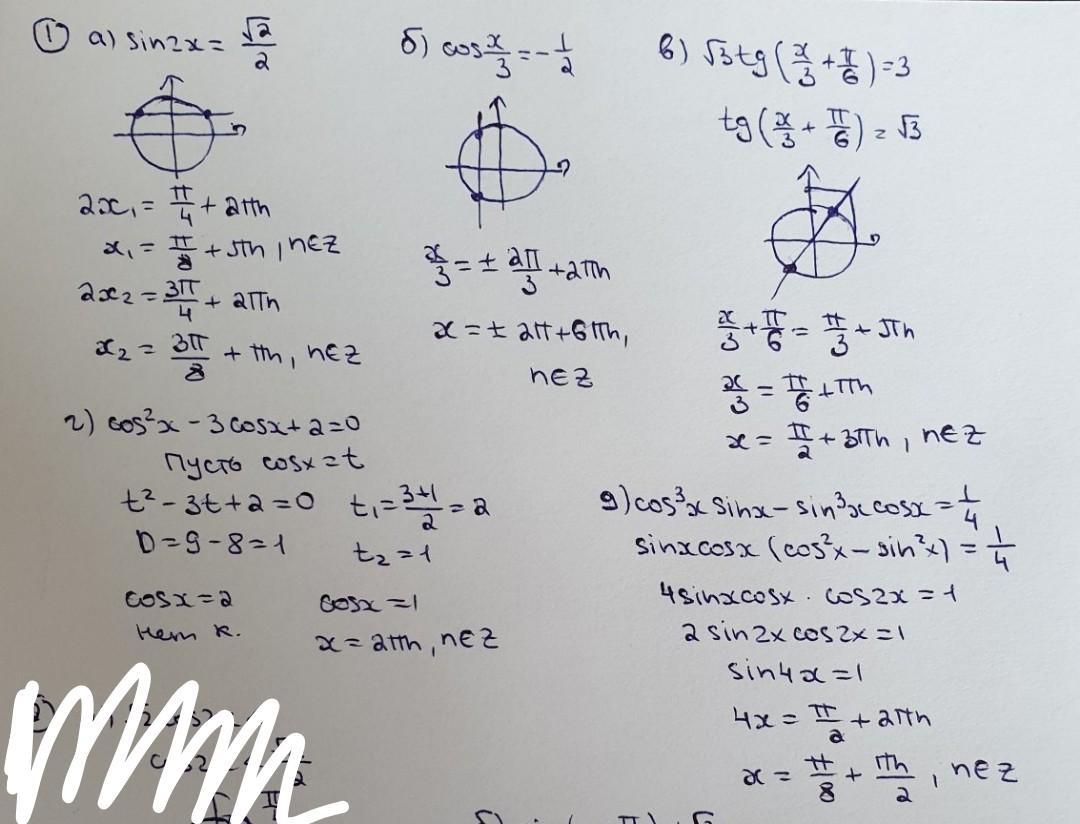 ① а) sin2x = √2/2
2x₁ = π/4 + 2πn
x₁ = π/8 + πn, n∈Z
2x₂ = 3π/4 + 2πn
x₂ = 3π/8 + πn, n∈Z
б) cos x/3 = -1/2
x/3 = ± 2π/3 + 2πn
x = ± 2π + 6πn,
n∈Z
в) √3 tg(x/3 + π/6) = 3
tg(x/3 + π/6) = √3
x/3 + π/6 = π/3 + πn
x/3 = π/6 + πn
x = π/2 + 3πn, n∈Z
г) cos²x - 3cosx + 2 = 0
Пусть cosx = t
t² - 3t + 2 = 0 t₁ = 3+1/2 = 2
D = 9 - 8 = 1 t₂ = 1
cosx = 2 cosx = 1
нет к. x = 2πn, n∈Z
g) cos³x sinx - sin³x cosx = 1/4
sinx cosx (cos²x - sin²x) = 1/4
4sinxcosx · cos2x = 1
2 sin2x cos2x = 1
sin4x = 1
4x = π/2 + 2πn
x = π/8 + πn/2, n∈Z